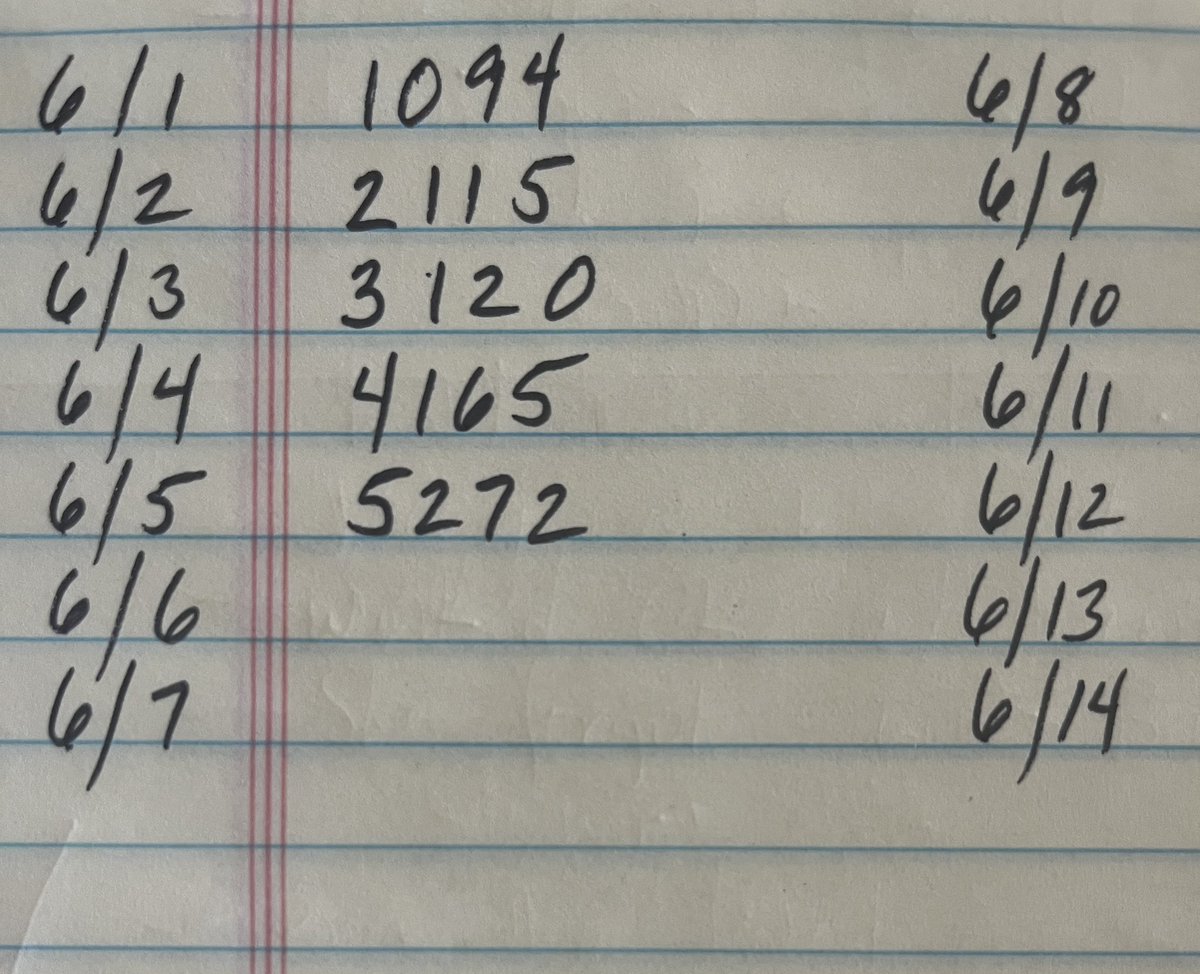 6/1 1094 6/8
6/2 2115 6/9
6/3 3120 6/10
6/4 4165 6/11
6/5 5272 6/12
6/6 6/13
6/7 6/14